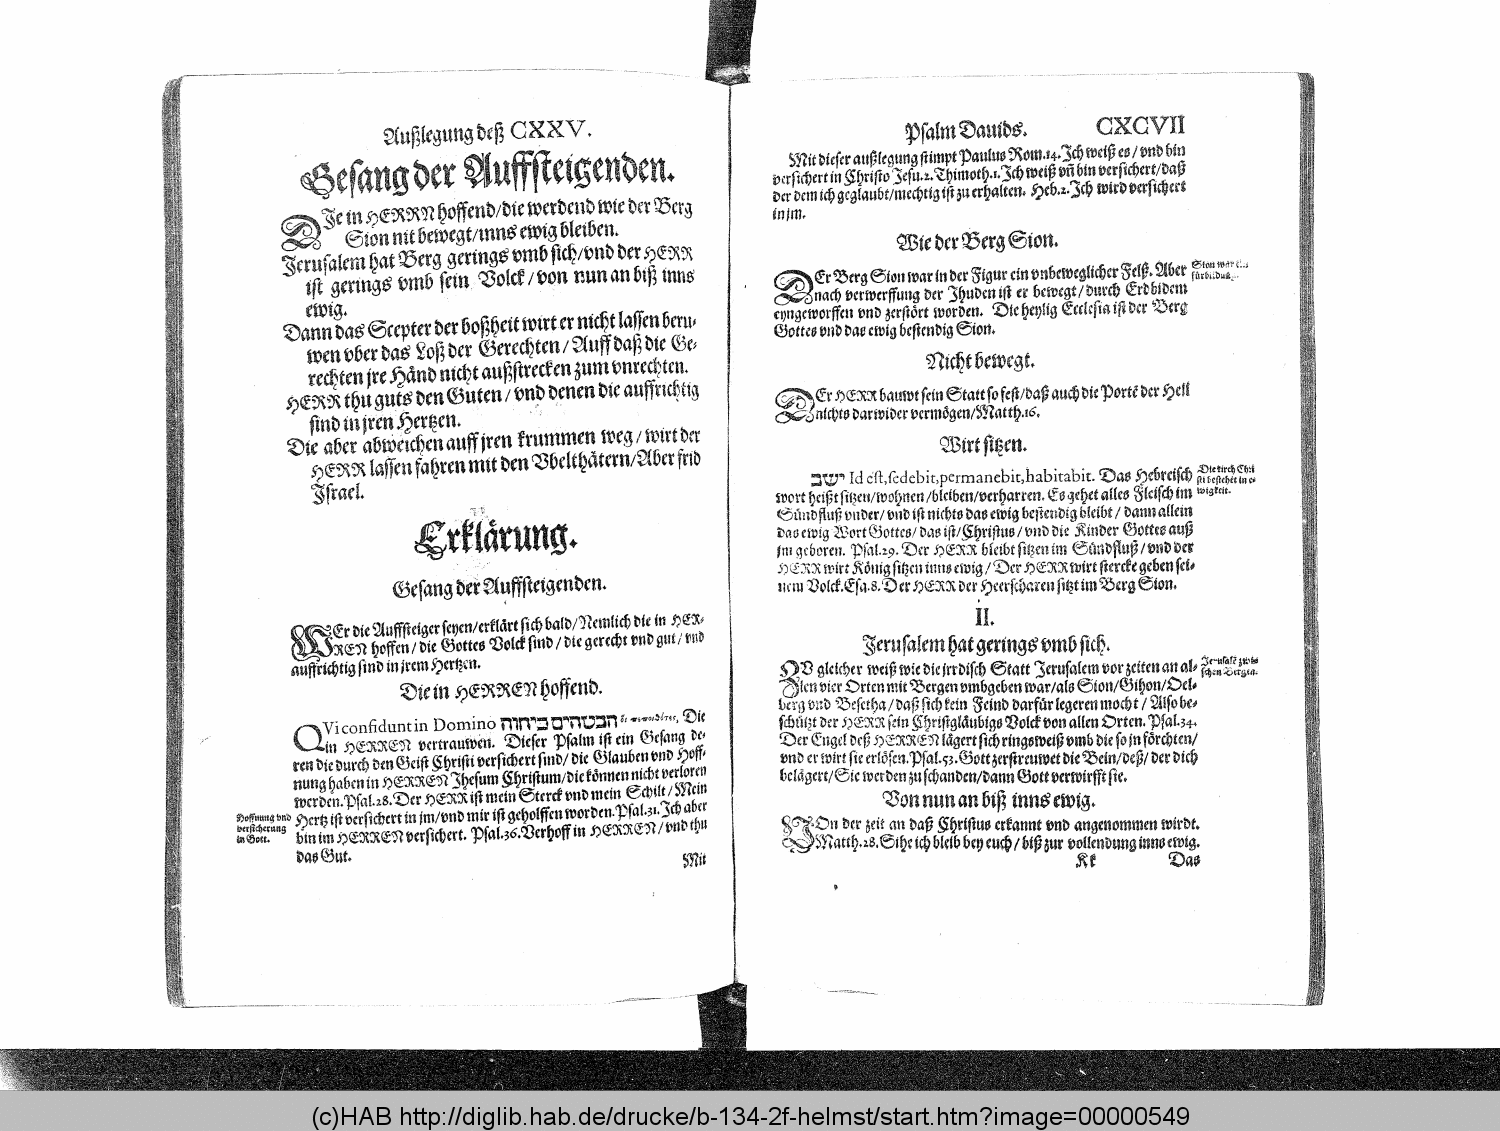 Außlegung deß CXXV.
Gesang der Auffsteigenden.
DJe in HERRN hoffend/die werdend wie der Berg
Sion nit bewegt/inns ewig bleiben.
Jerusalem hat Berg gerings vmb sich/vnd der HERR
ist gerings vmb sein Volck/von nun an biß inns
ewig.
Dann das Scepter der boßheit wirt er nicht lassen beru-
wen vber das Loß der Gerechten/Auff daß die Ge-
rechten jre Händ nicht außstrecken zum vnrechten.
HERR thu guts den Guten/vnd denen die auffrichtig
sind in jren Hertzen.
Die aber abweichen auff jren krummen weg/wirt der
HERR lassen fahren mit den Vbelthätern/Aber frid
Jsrael.
Erklärung.
Gesang der Auffsteigenden.
WEr die Auffsteiger seyen/erklärt sich bald/Nemlich die in HER-
REN hoffen/die Gottes Volck sind/die gerecht vnd gut/vnd
auffrichtig sind in jrem Hertzen.
Die in HERREN hoffend.
QVi confidunt in Domino הבטחים ביהוה Die
in HERREN vertrauwen. Dieser Psalm ist ein Gesang de-
ren die durch den Geist Christi versichert sind/die Glauben vnd Hoff-
nung haben in HERREN Jhesum Christum/die können nicht verloren
werden. Psal.28. Der HERR ist mein Sterck vnd mein Schilt/Mein
Hertz ist versichert in jm/vnd mir ist geholffen worden. Psal.31. Jch aber
bin im HERREN versichert. Psal.36. Verhoff in HERREN/vnd thu
das Gut.
Hoffnung vnd
versicherung
in Gott.
Mit
Psalm Dauids. CXCVII
Mit dieser außlegung stimpt Paulus Rom.14. Jch weiß es/vnd bin
versichert in Christo Jesu.2.Thimoth.1. Jch weiß vñ bin versichert/daß
der dem ich geglaubt/mechtig ist zu erhalten. Heb.2. Jch wird versichert
in jm.
Wie der Berg Sion.
DEr Berg Sion war in der Figur ein vnbeweglicher Felß. Aber
nach verwerffung der Jhuden ist er bewegt/durch Erdbidem
eyngeworffen vnd zerstört worden. Die heylig Ecclesia ist der Berg
Gottes vnd das ewig bestendig Sion.
Sion war
fürbildu
Nicht bewegt.
DEr HERR bauwt sein Statt so fest/daß auch die Portē der Hell
nichts darwider vermögen/Matth.16.
Wirt sitzen.
ישב Id est, sedebit, permanebit, habitabit. Das Hebreisch
wort heißt sitzen/wohnen/bleiben/verharren. Es gehet alles Fleisch im
Sündfluß vnder/vnd ist nichts das ewig bestendig bleibt/dann allein
das ewig Wort Gottes/das ist/Christus/vnd die Kinder Gottes auß
jm geboren. Psal.29. Der HERR bleibt sitzen im Sündfluß/vnd der
HERR wirt König sitzen inns ewig/Der HERR wirt stercke geben sei-
nem Volck. Esa.8. Der HERR der Heerscharen sitzt im Berg Sion.
Die kirch Chri
sti bestehet in e-
wigkeit.
II.
Jerusalem hat gerings vmb sich.
ZV gleicher weiß wie die jrrdisch Statt Jerusalem vor zeiten an al-
len vier Orten mit Bergen vmbgeben war/als Sion/Gihon/Oel-
berg vnd Besetha/daß sich kein Feind darfür legeren mocht/Also be-
schützt der HERR sein Christgläubigs Volck von allen Orten. Psal.34.
Der Engel deß HERREN lägert sich ringsweiß vmb die so jn förchten/
vnd er wirt sie erlösen. Psal.53. Gott zerstreuwet die Bein/deß/der dich
belägert/Sie werden zu schanden/dann Gott verwirfft sie.
Jerusalē zwis
schen Bergen.
Von nun an biß inns ewig.
VOn der zeit an daß Christus erkannt vnd angenommen wirdt.
Matth.28. Sihe ich bleib bey euch/biß zur vollendung inns ewig.
Kk Das
(c)HAB http://diglib.hab.de/drucke/b-134-2f-helmst/start.htm?image=00000549